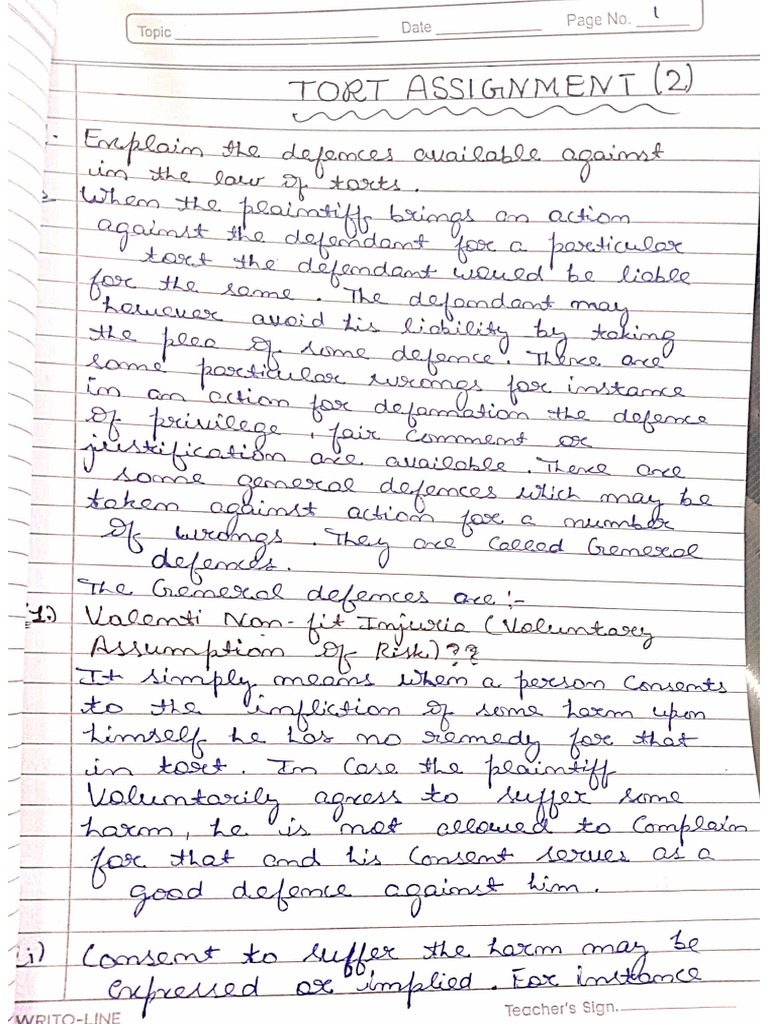 Topic Date Page No. 1
TORT ASSIGNMENT (2)
Explain the defences available against
in the law of torts.
When the plaintiff brings an action
against the defendant for a particular
tort the defendant would be liable
for the same. The defandant may
however avoid his liability by taking
the plea of some defence. There are
some particular wrongs for instance
in an action for defamation the defence
of privilege, fair comment or
justification are available. There are
some general defences which may be
taken against action for a number
of wrongs. They are called General
defences.
The General defences are :-
1.) Valenti Non-fit Injuria (Voluntary
Assumption of Risk)??
It simply means when a person consents
to the infliction of some harm upon
himself he has no remedy for that
in tort. In Case the plaintiff
Voluntarily agress to suffer some
harm, he is not allowed to Complain
for that and his Consent serves as a
good defence against him.
i) Consent to suffer the harm may be
expressed or implied. For instance
WRITO-LINE Teacher's Sign.